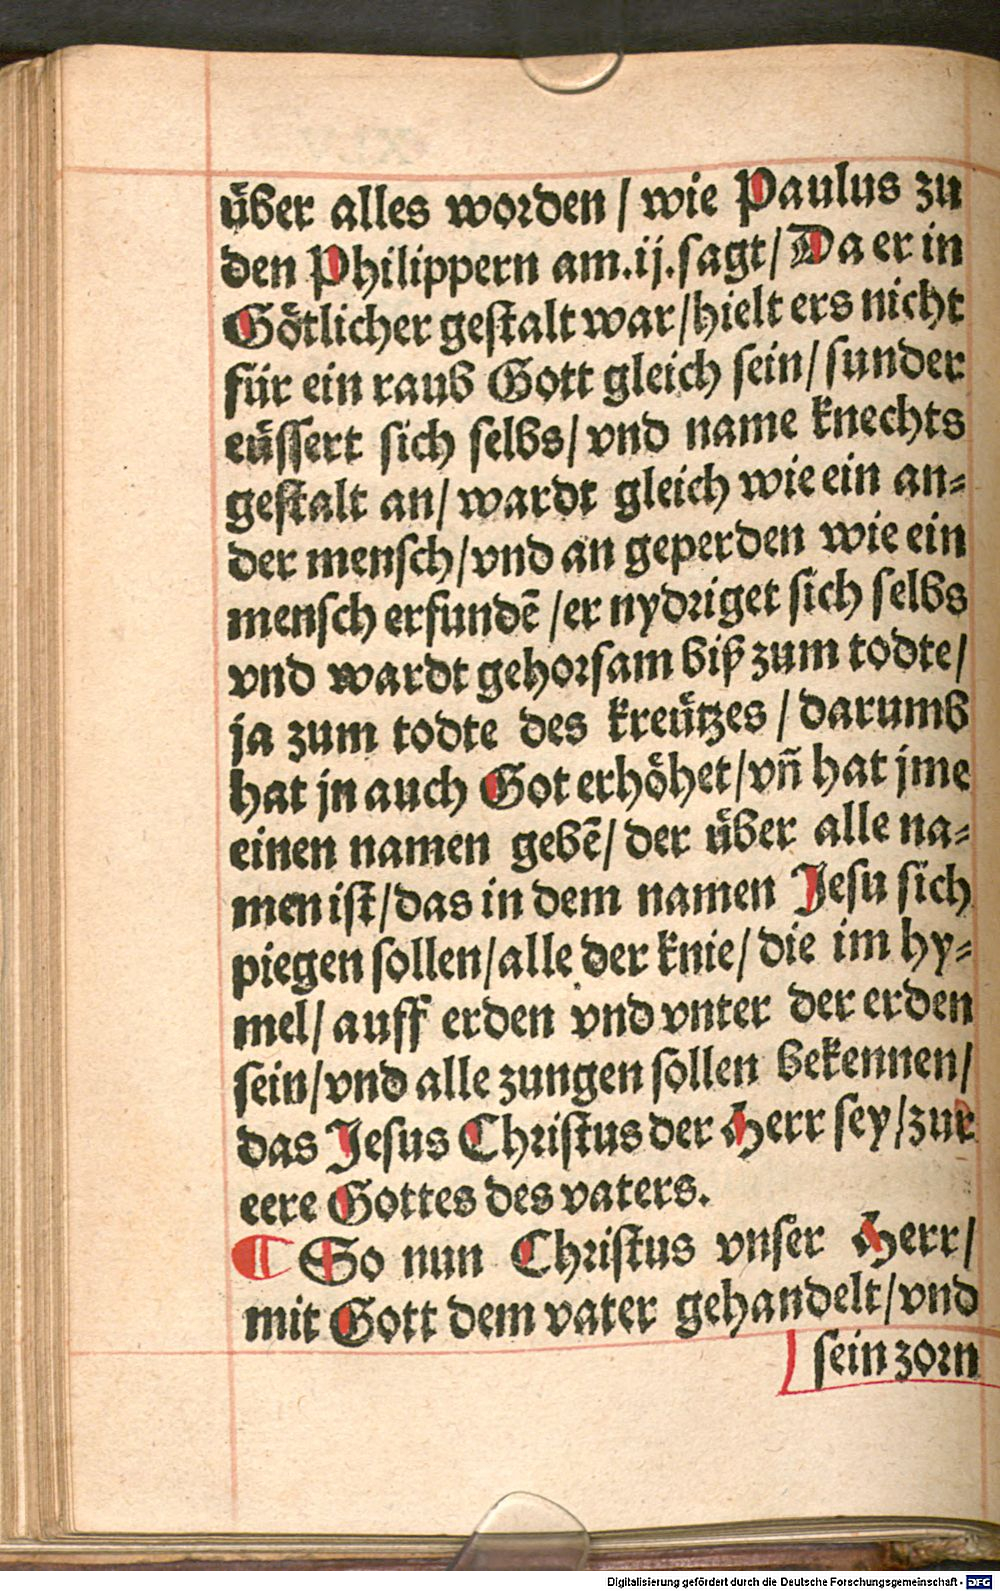 uͤber alles worden / wie Paulus zu
den Philippern am.ij.sagt / Da er in
Goͤtlicher gestalt war / hielt ers nicht
für ein raub Gott gleich sein / sunder
eüssert sich selbs / vnd name knechts
gestalt an / wardt gleich wie ein an-
der mensch / vnd an geperden wie ein
mensch erfundē / er nydriget sich selbs
vnd wardt gehorsam biß zum todte /
ja zum todte des kreützes / darumb
hat jn auch Got erhoͤhet / vñ hat jme
einen namen gebē / der uͤber alle na-
men ist / das in dem namen Jesu sich
piegen sollen / alle der knie / die im hy-
mel / auff erden vnd vnter der erden
sein / vnd alle zungen sollen bekennen /
das Jesus Christus der Herr sey / zur
eere Gottes des vaters.
¶ So nun Christus vnser Herr /
mit Gott dem vater gehandelt / vnd
sein zorn
Digitalisierung gefördert durch die Deutsche Forschungsgemeinschaft - DFG